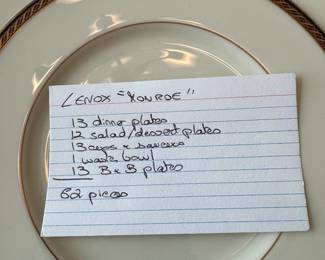 LENOX "MONROE"
13 dinner plates
12 salad/dessert plates
13 cups + saucers
1 waste bowl
13 B + B plates
62 pieces